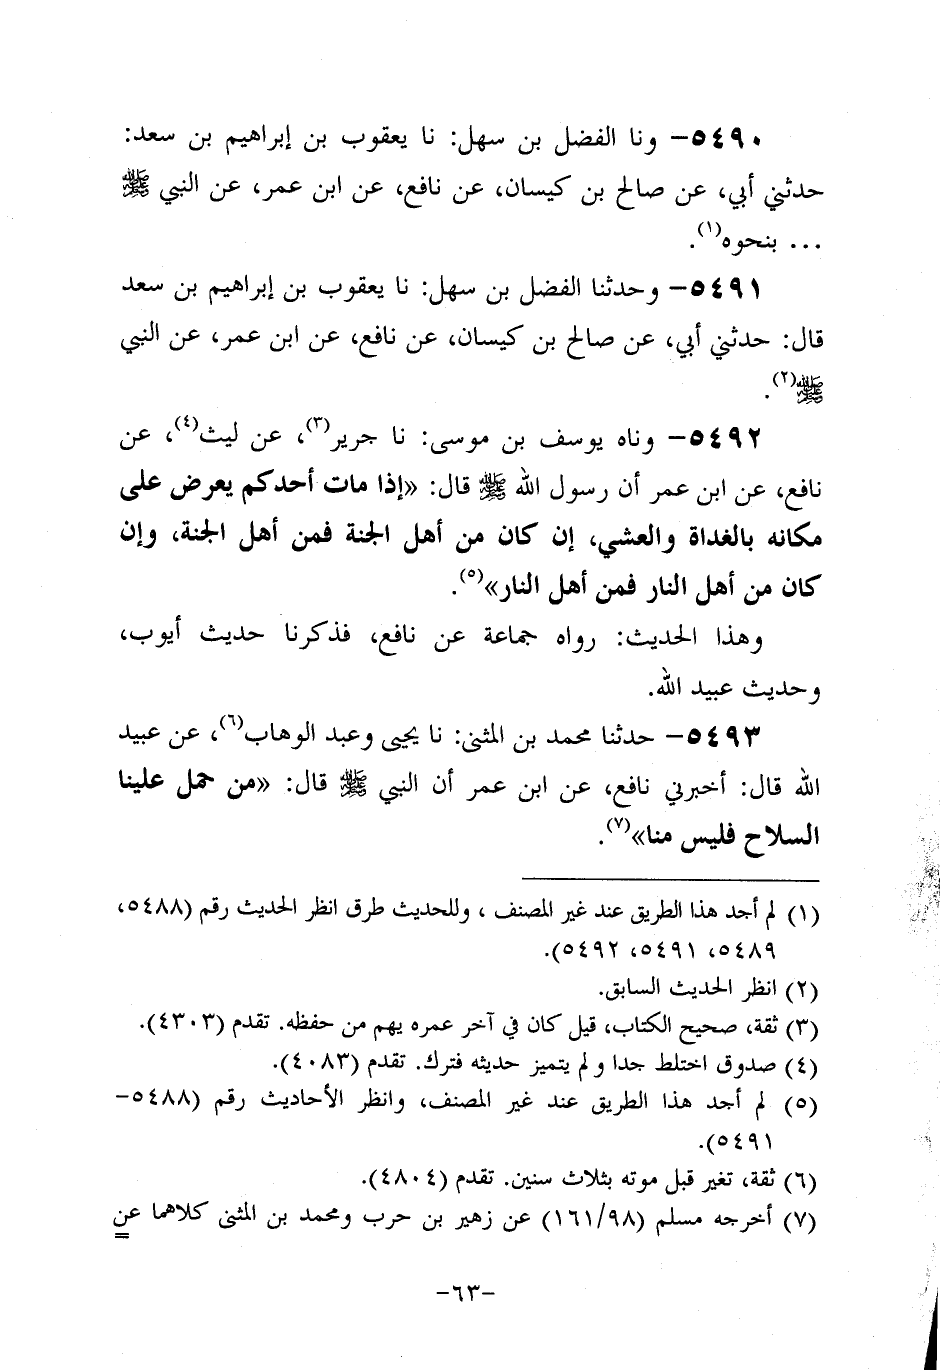 ٥٤٩٠- ونا الفضل بن سهل: نا يعقوب بن إبراهيم بن سعد:
حدثني أبي، عن صالح بن كيسان، عن نافع، عن ابن عمر، عن النبي ﷺ
... بنحوه(١).
٥٤٩١- وحدثنا الفضل بن سهل: نا يعقوب بن إبراهيم بن سعد
قال: حدثني أبي، عن صالح بن كيسان، عن نافع، عن ابن عمر، عن النبي
ﷺ(٢).
٥٤٩٢- وناه يوسف بن موسى: نا جرير(٣)، عن ليث(٤)، عن
نافع، عن ابن عمر أن رسول الله ﷺ قال: «إذا مات أحدكم يعرض على
مكانه بالغداة والعشي، إن كان من أهل الجنة فمن أهل الجنة، وإن
كان من أهل النار فمن أهل النار»(٥).
وهذا الحديث: رواه جماعة عن نافع، فذكرنا حديث أيوب،
وحديث عبيد الله.
٥٤٩٣- حدثنا محمد بن المثنى: نا يحيى وعبد الوهاب(٦)، عن عبيد
الله قال: أخبرني نافع، عن ابن عمر أن النبي ﷺ قال: «من حمل علينا
السلاح فليس منا»(٧).
(١) لم أجد هذا الطريق عند غير المصنف ، وللحديث طرق انظر الحديث رقم (٥٤٨٨،
٥٤٨٩، ٥٤٩١، ٥٤٩٢).
(٢) انظر الحديث السابق.
(٣) ثقة، صحيح الكتاب، قيل كان في آخر عمره يهم من حفظه. تقدم (٤٣٠٣).
(٤) صدوق اختلط جدا و لم يتميز حديثه فترك. تقدم (٤٠٨٣).
(٥) لم أجد هذا الطريق عند غير المصنف، وانظر الأحاديث رقم (٥٤٨٨-
٥٤٩١).
(٦) ثقة، تغير قبل موته بثلاث سنين. تقدم (٤٨٠٤).
(٧) أخرجه مسلم (١٦١/٩٨) عن زهير بن حرب ومحمد بن المثنى كلاهما عن
=
-٦٣-